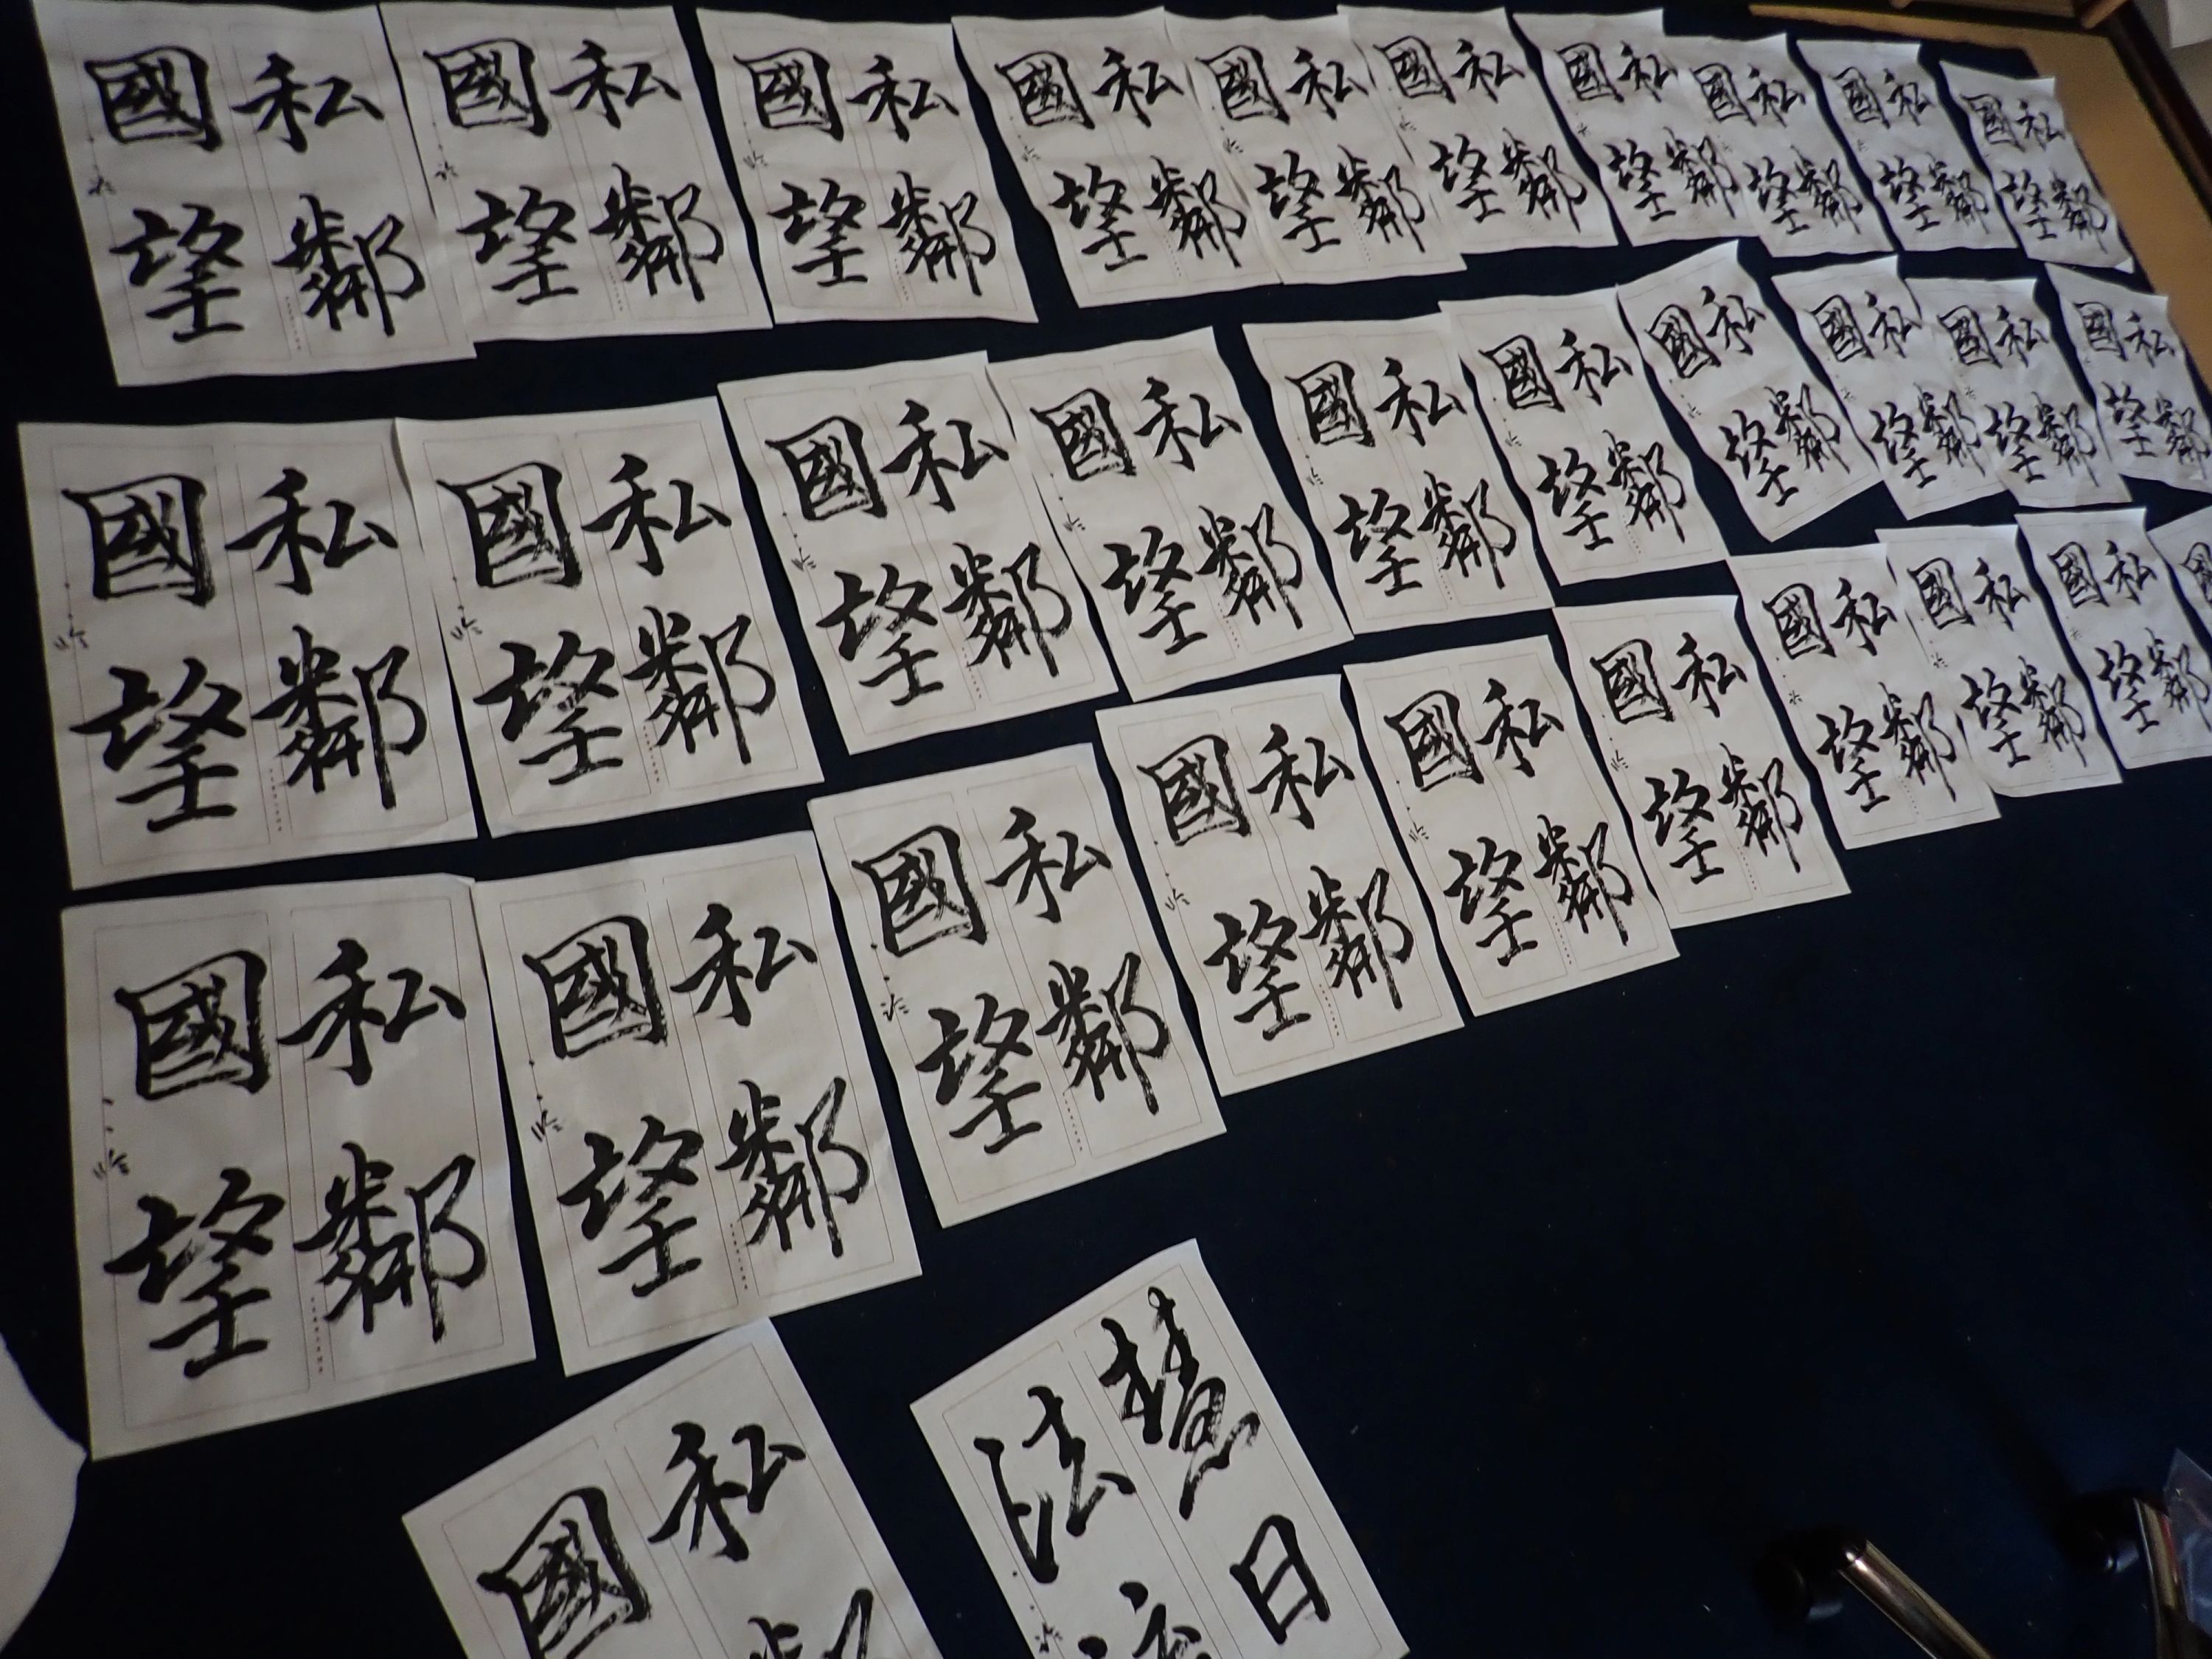 私鄰
國望
私鄰
國望
私鄰
國望
私鄰
國望
私鄰
國望
私鄰
國望
私鄰
國望
私鄰
國望
私鄰
國望
私鄰
國望
私鄰
國望
私鄰
國望
私鄰
國望
私鄰
國望
私鄰
國望
私鄰
國望
私鄰
國望
私鄰
國望
私鄰
國望
私鄰
國望
私鄰
國望
私鄰
國望
私鄰
國望
私鄰
國望
私鄰
國望
私鄰
國望
私鄰
國望
私鄰
國望
私鄰
國望
私
國
慧日
法